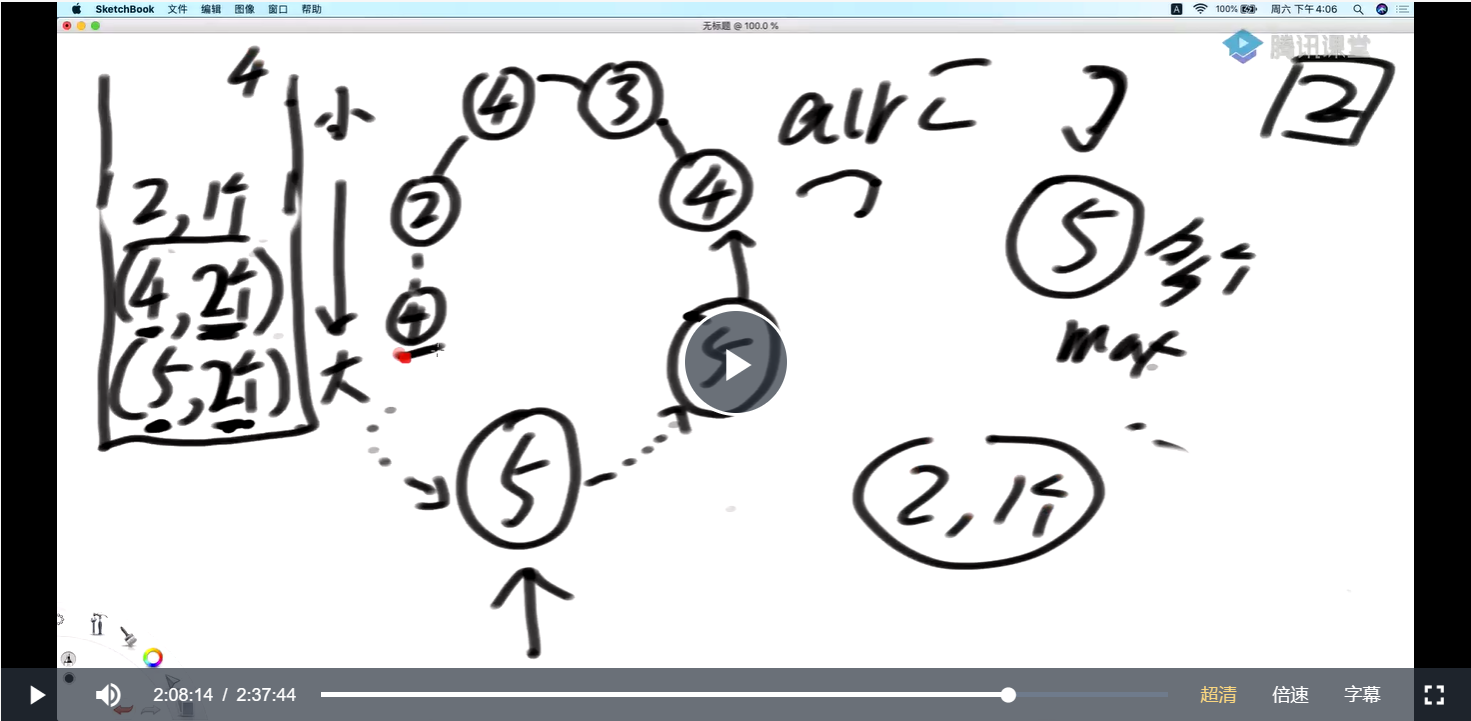 SketchBook 文件 编辑 图像 窗口 帮助
A 100% 周六 下午4:06
无标题 @ 100.0 %
腾讯课堂
4
小
大
2,1个
(4,2个)
(5,2个)
4
3
2
4
4
5
5
arr [ ]
2
5
多个
max
2,1个
2:08:14 / 2:37:44
超清 倍速 字幕